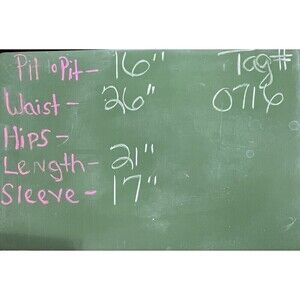 Pit to Pit - 16" Tag#
Waist - 26" 0716
Hips -
Length - 21"
Sleeve - 17"